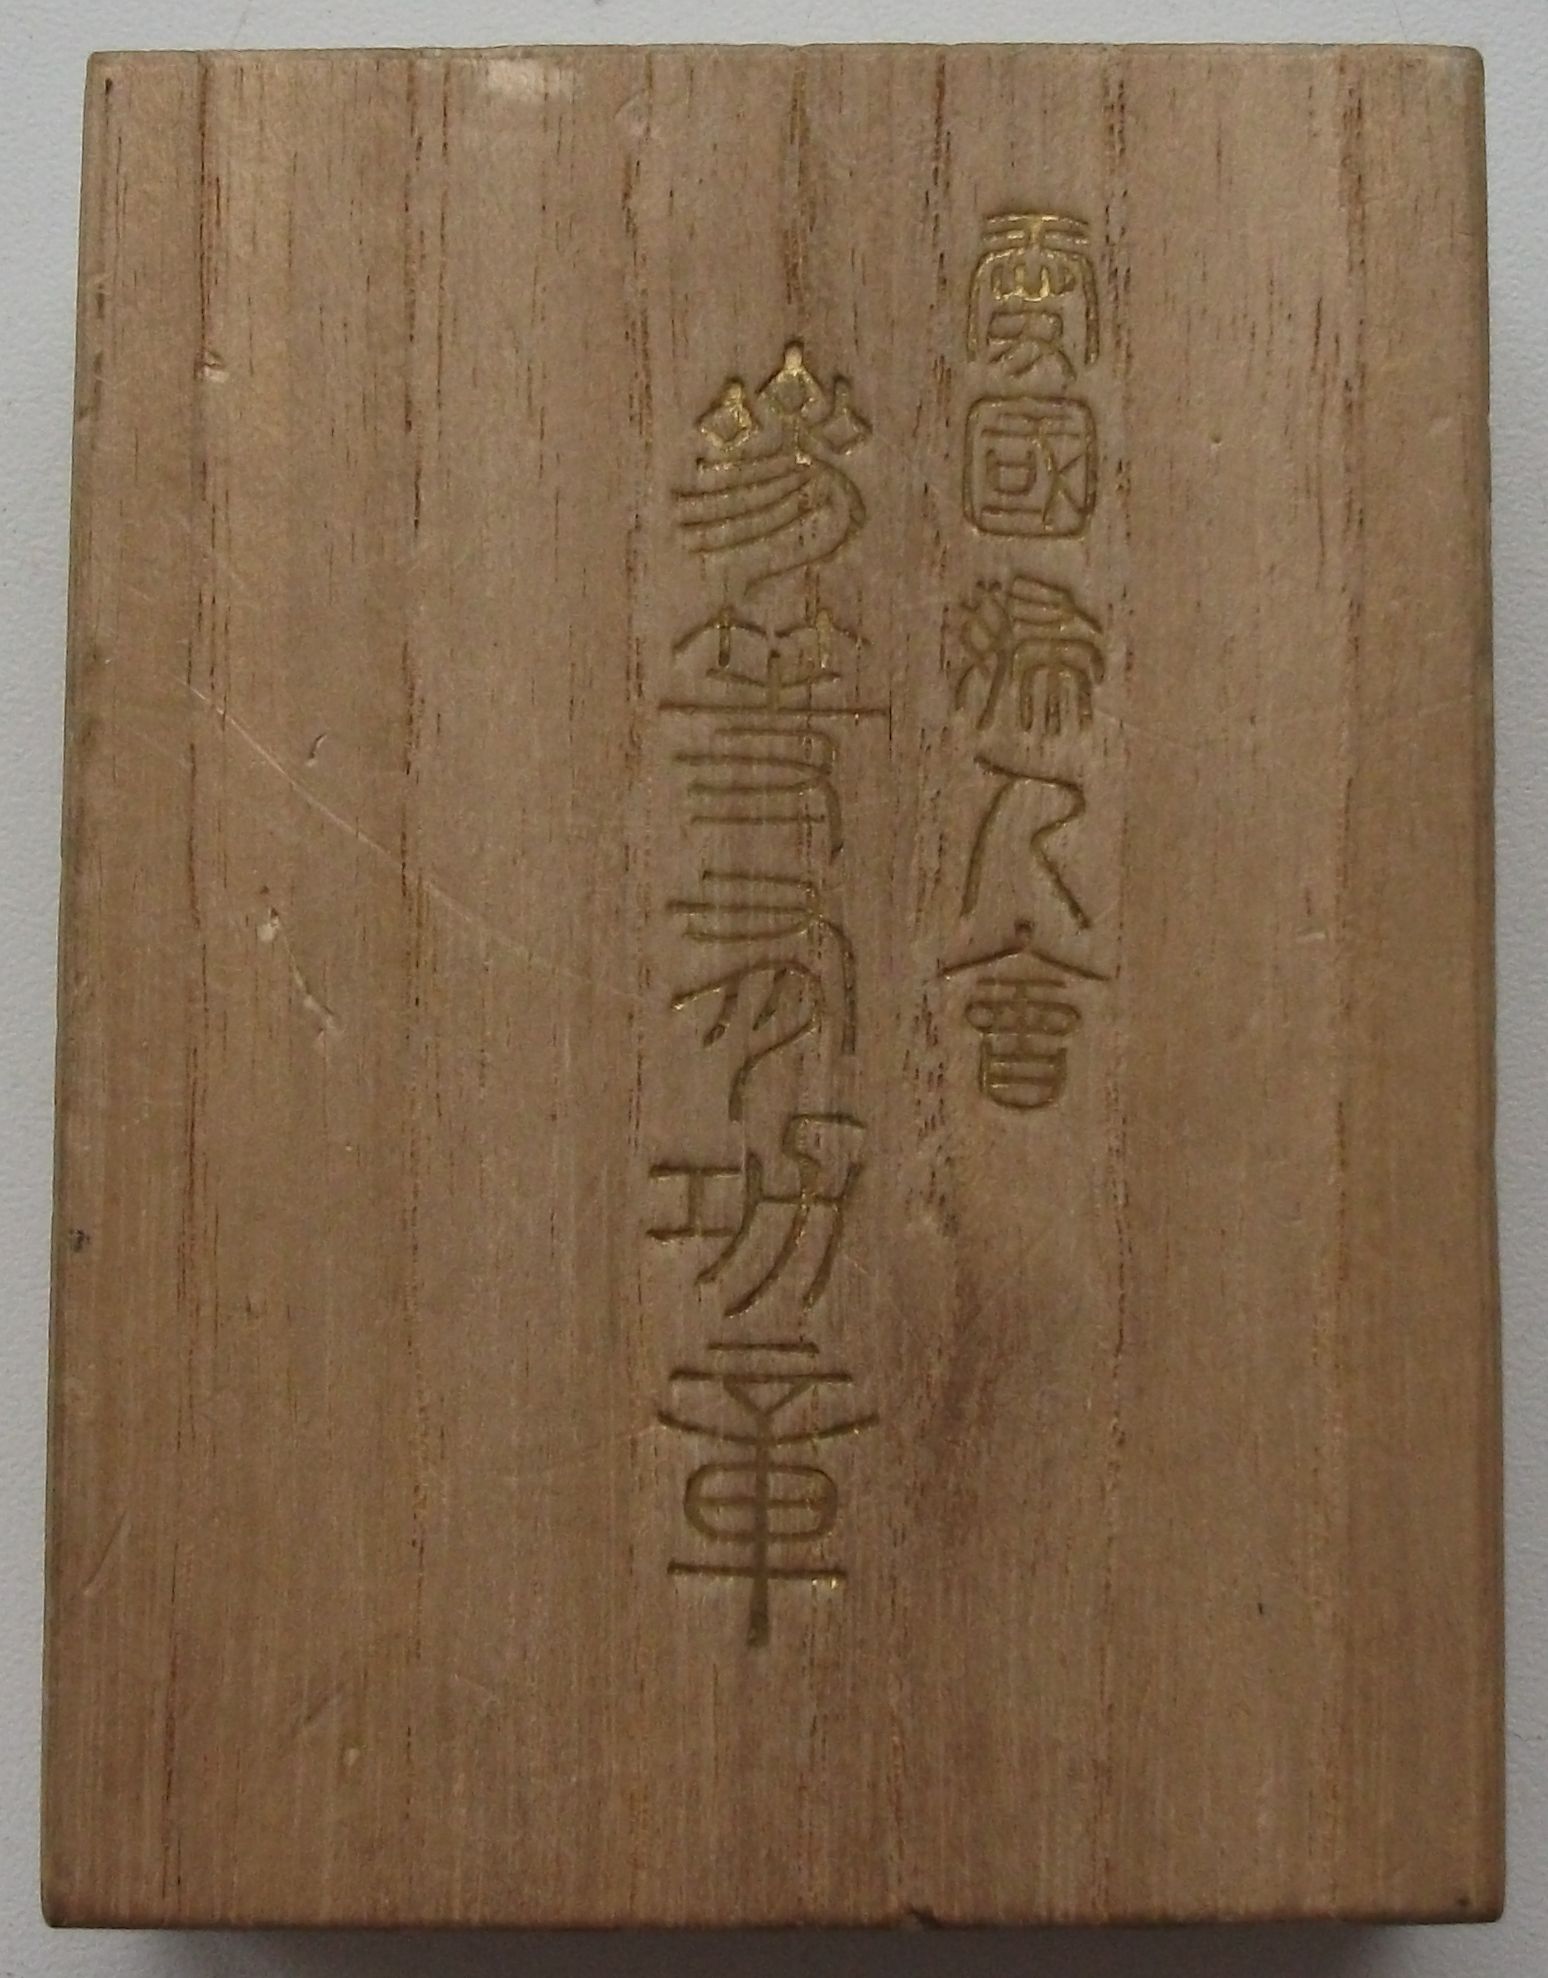 愛國婦人會
參等有功章